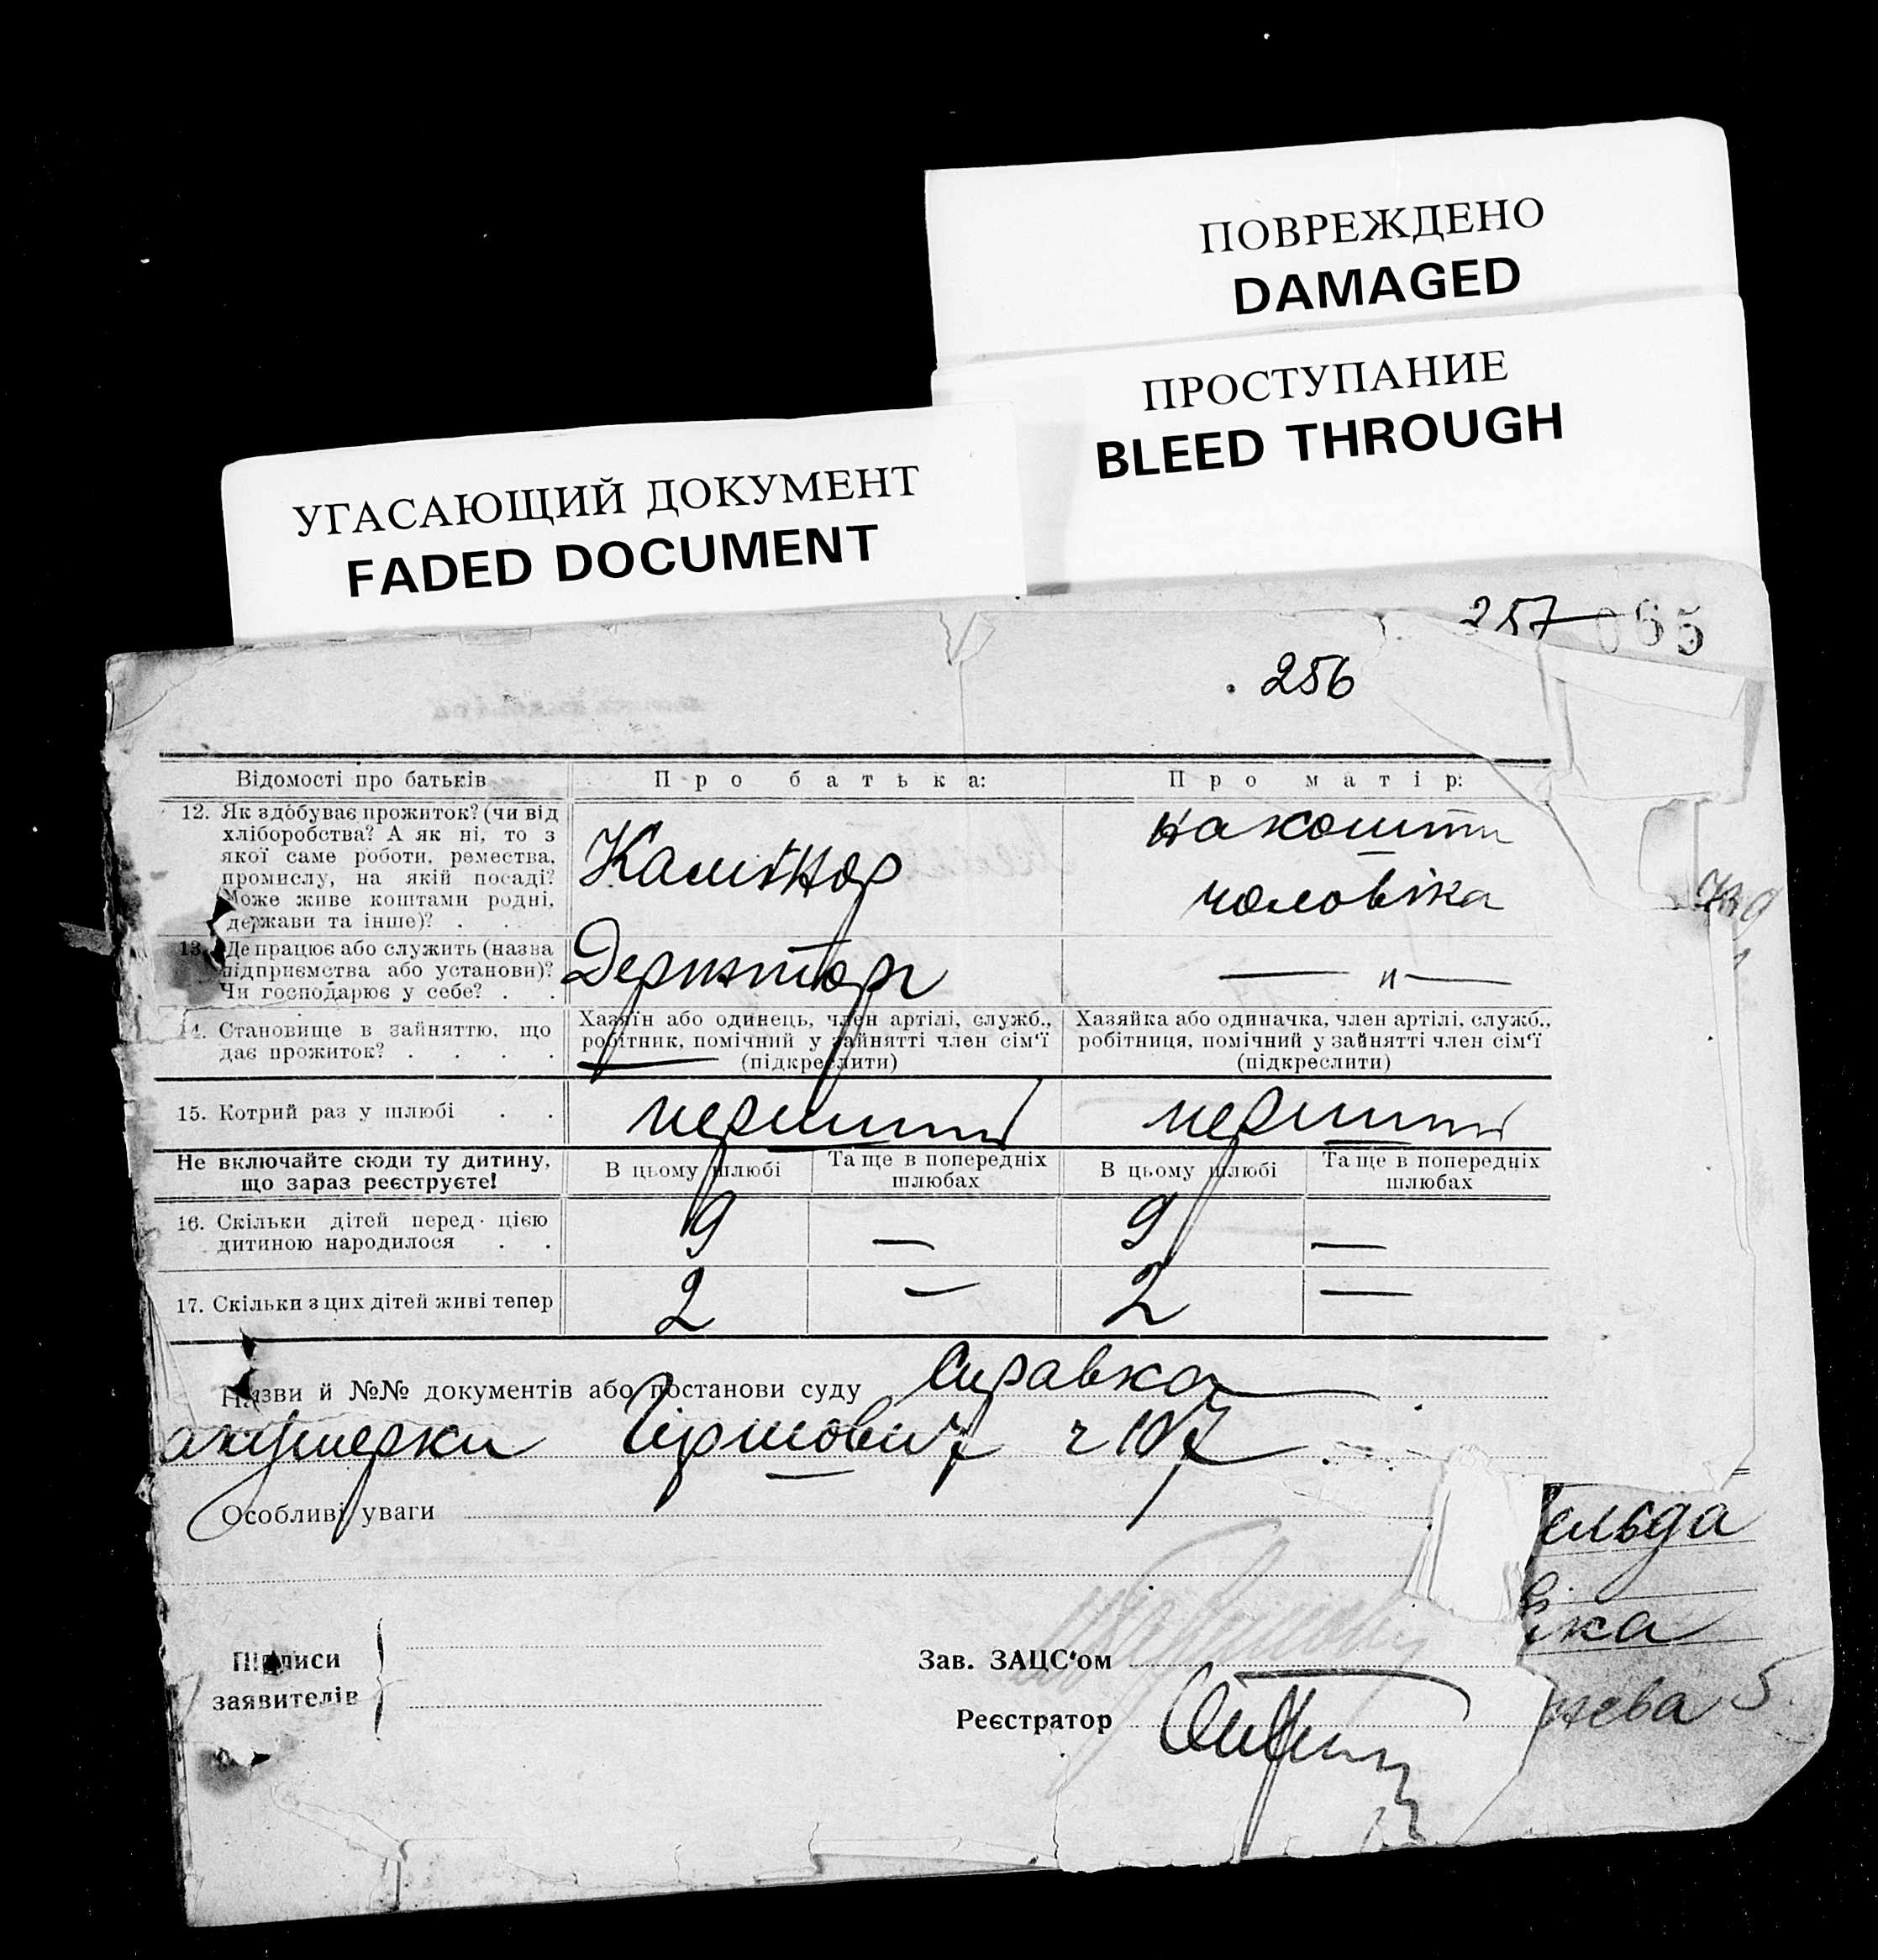 ПОВРЕЖДЕНО
DAMAGED
ПРОСТУПАНИЕ
BLEED THROUGH
УГАСАЮЩИЙ ДОКУМЕНТ
FADED DOCUMENT
257 065
256
Відомості про батьків Про батька: Про матір:
12. Як здобуває прожиток? (чи від
хліборобства? А як ні, то з
якої саме роботи, ремества,
промислу, на якій посаді?
Може живе коштами родні,
держави та інше)? . . .
на кошти
чоловіка
13. Де працює або служить (назва
підприємства або установи)?
Чи господарює у себе? . .
Держторг — „ —
14. Становище в зайняттю, що
дає прожиток? . . . .
Хазяїн або одинець, член артілі, служб.,
робітник, помічний у зайнятті член сім'ї
(підкреслити)
Хазяйка або одиначка, член артілі, служб.,
робітниця, помічний у зайнятті член сім'ї
(підкреслити)
15. Котрий раз у шлюбі . . перший перший
Не включайте сюди ту дитину,
що зараз реєструєте!
В цьому шлюбі Та ще в попередніх
шлюбах
В цьому шлюбі Та ще в попередніх
шлюбах
16. Скільки дітей перед цією
дитиною народилося . . 9 — 9 —
17. Скільки з цих дітей живі тепер 2 — 2 —
Назви й №№ документів або постанови суду Справка
акушерки Гіршович ч 107
Особливі уваги
Підписи
заявителів
Зав. ЗАЦС'ом
Реєстратор
ельда
віка
5